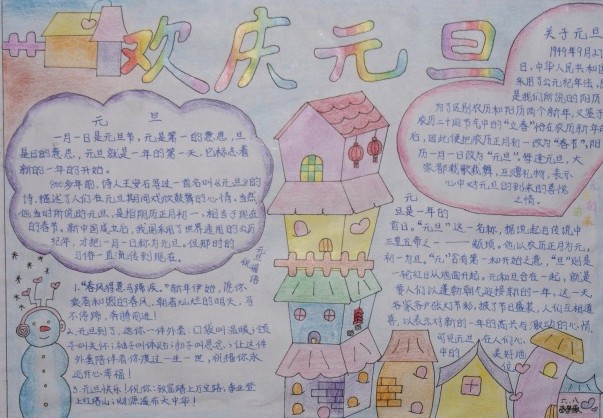 欢庆元旦
元 旦
一月一日是元旦节,元是第一的意思,旦
是日的意思,元旦就是一年的第一天,它标志着
新的一年的开始。
800多年前,诗人王安石写过一首名叫《元旦》的
诗,描述了人们在元旦期间戏炊鼓舞的心情。当然
他当时所说的元旦,是指阴历正月初一,相当于现在
的春节。新中国成立后,我国采用了世界通用的公历
纪年,才把一月一日称为元旦。但那时的
习俗一直流传到现在。
关于元旦
1949年9月27
日,中华人民共和国
采用了公元纪年法,
是我们所说的阳历
为了区别农历和阳历两个新年,又鉴于
农历二十四节气中的“立春”恰在农历新年前
后,因此便把农历正月初一改为“春节”,阳
历一月一日改为“元旦”。每逢元旦,大
家都载歌载舞,互赠礼物,表示
心中对元旦的到来的喜悦
之情。
元旦祝福语
1."春风得意马蹄疾。"新年伊始,愿你
乘着和煦的春风,朝着灿烂的明天,马
不停蹄,奔腾向前!
2.元旦到了,送你一件外套:口袋叫温暖;领
子叫关怀;袖子叫体贴;扣子叫思念;让这件
外套陪伴着你度过一生一世,祝福你永
远开心幸福!
3.元旦快乐!祝你:致富踏上万宝路,事业登
上红塔山;财源遍布大中华!
元
旦是一年的
首日。“元旦”这一名称,据说起自传说中
三皇五帝之一——颛顼。他以农历正月为元,
初一为旦。“元”含有第一和开始之意,“旦”则是
一轮红日从地面升起。元和旦合在一起,就是
要人们以蓬勃朝气迎接新的一年,这一天
各家各户张灯节彩,披了节日盛装,人们互相道
喜,以表示对新的一年的高兴与激动的心情,
可见元旦
在人们心
中的
美好地
位
六.八